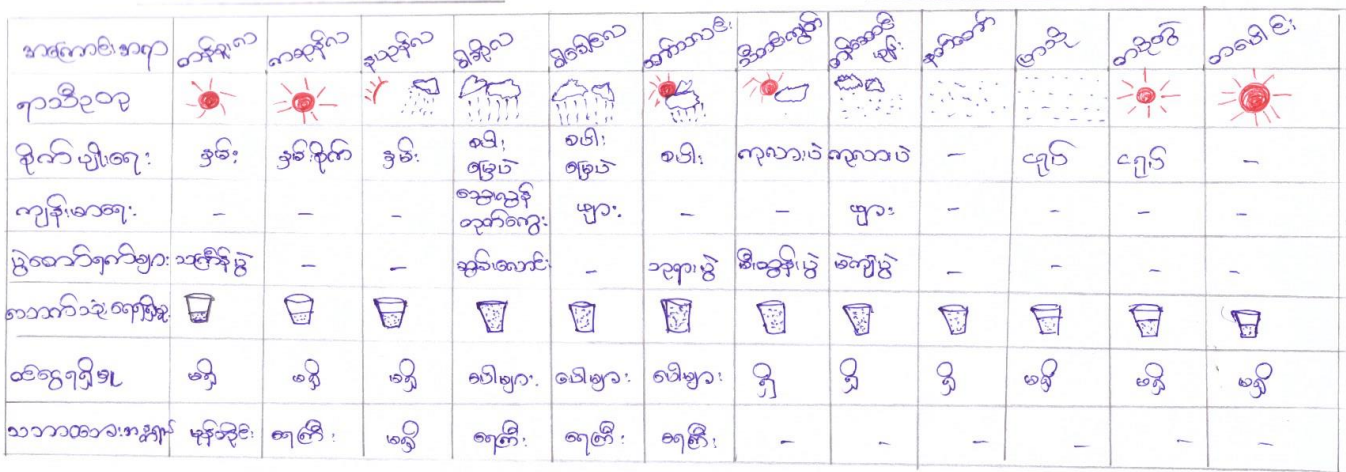 အကြောင်းအရာ တန်ခူးလ ကဆုန်လ နယုန်လ ဝါဆိုလ ဝါခေါင်လ တော်သလင်း သီတင်းကျွတ် တန်ဆောင်မုန်း နတ်တော် ပြာသို တပို့တွဲ တပေါင်း
ရာသီဥတု
စိုက်ပျိုးရေး နှမ်း နှမ်းစိုက် နှမ်း စပါး မြေပဲ စပါး မြေပဲ စပါး ကုလားပဲ ကုလားပဲ - ငရုပ် ငရုပ် -
ကျန်းမာရေး - - - သွေးလွန်တုတ်ကွေး ဖျား - - ဖျား - - - -
ပွဲတော်ရက်များ သင်္ကြန်ပွဲ - - ဆွမ်းလောင်း - ဘုရားပွဲ မီးထွန်းပွဲ - - - -
သောက်သုံးရေရရှိမှု
ထင်းရရှိမှု မရှိ မရှိ မရှိ ပေါများ ပေါများ ပေါများ ရှိ ရှိ ရှိ မရှိ မရှိ မရှိ
သဘာဝဘေးအန္တရာယ် မုန်တိုင်း ရေကြီး မရှိ ရေကြီး ရေကြီး ရေကြီး - - - - - -